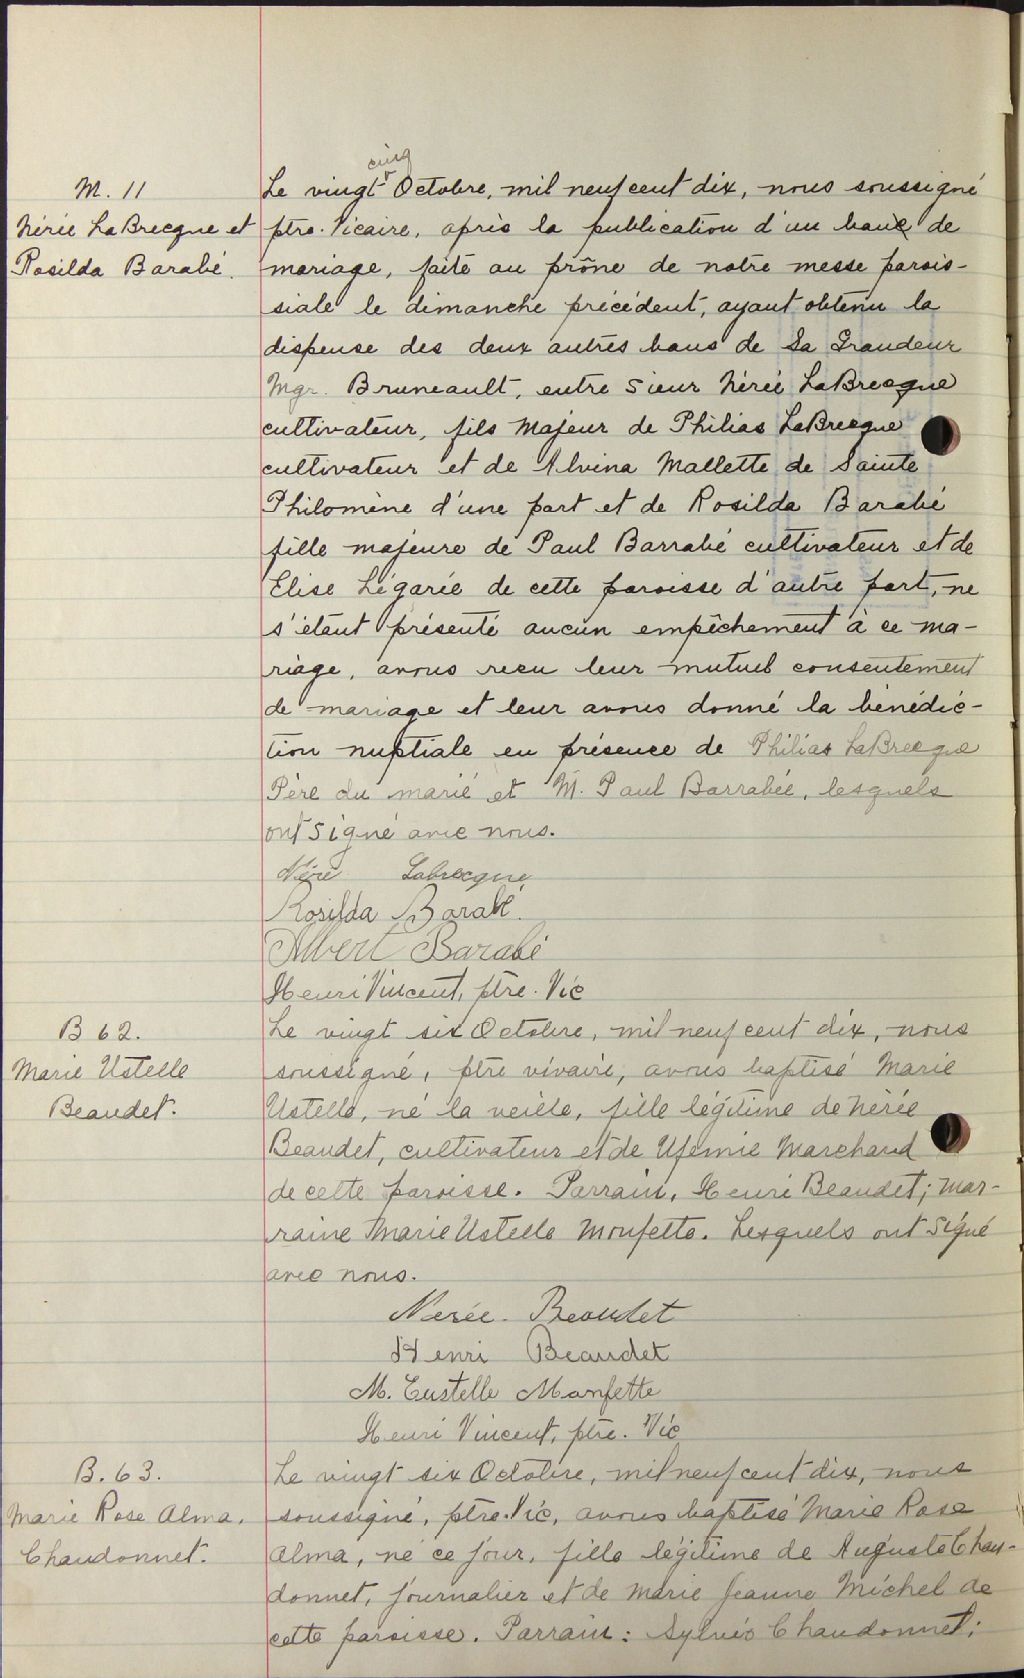 M. 11
Nérée LaBrecque et
Rosilda Barabé.
cinq
Le vingt Octobre, mil neuf cent dix, nous soussigné
ptre. Vicaire, après la publication d'un banc de
mariage, faite au prône de notre messe parois-
siale le dimanche précédent, ayant obtenu la
dispense des deux autres bans de Sa Grandeur
Mgr. Bruneault, entre Sieur Nérée LaBrecque
cultivateur, fils Majeur de Philias LaBrecque
cultivateur et de Alvina Mallette de Sainte
Philomène d'une part et de Rosilda Barabé
fille majeure de Paul Barrabé cultivateur et de
Elise Légarée de cette paroisse d'autre part, ne
s'étant présenté aucun empêchement à ce ma-
riage, avons recu leur mutuel consentement
de mariage et leur avons donné la bénédic-
tion nuptiale en présence de Philias LaBrecque
Père du marié et M. Paul Barrabée, lesquels
ont Signé avec nous.
Nére Labrecque
Rosilda Barabé.
Albert Barabé
Henri Vincent, ptre. Vic
B 62.
Marie Ustelle
Beaudet.
Le vingt six Octobre, mil neuf cent dix, nous
soussigné, ptre vivaire, avons baptisé Marie
Ustelle, né la veille, fille légitime de Nérée
Beaudet, cultivateur et de Ufemie Marchand
de cette paroisse. Parrain, Henri Beaudet; mar-
raine Marie Ustelle Monfette. Lesquels ont Signé
avec nous.
Nerée. Beaudet
Henri Beaudet
M. Eustelle Manfette
Henri Vincent, ptre. Vic
B. 63.
Marie Rose Alma.
Chaudonnet.
Le vingt six Octobre, mil neuf cent dix, nous
soussigné, ptre. Vic, avons baptisé Marie Rose
Alma, né ce jour, fille légitime de Auguste Chau-
donnet, journalier et de Marie Jeanne Michel de
cette paroisse. Parrain: Sylvio Chaudonnet;